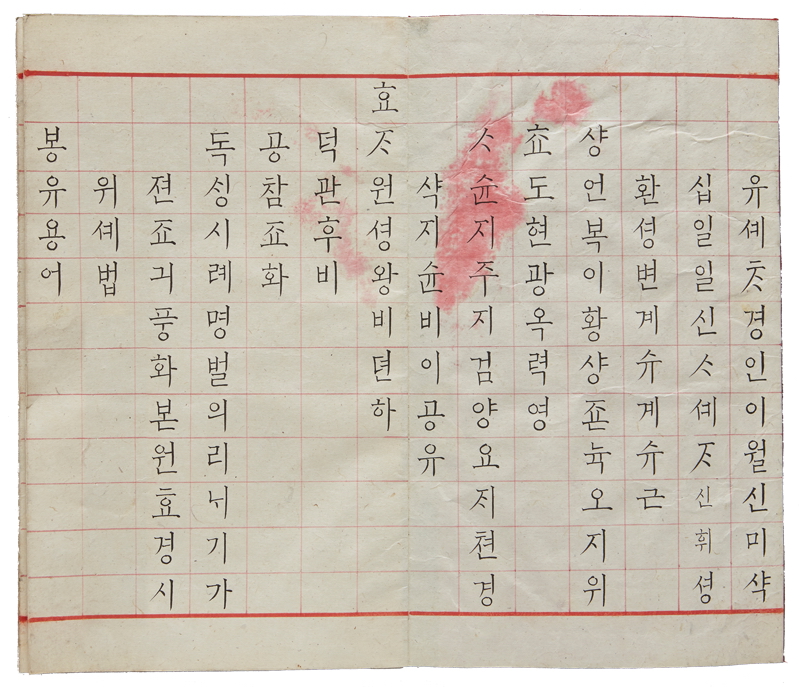 유셰ᄎᆞ경인이월신미샥
십일일신ᄉᆞ셰ᄌᆞ신휘셩
환셩변계슈계슈근
샹언복이황샹죤뉵오지위
쵸도현광옥력영
ᄉᆞ슌지주지검양요지쳔경
샥지슌비이공유
효ᄌᆞ원셩왕비텬하
덕관후비
공참죠화
독싱시례명벌의리ᄂᆡ기가
젼죠긔풍화본원효경시
위셰법
봉유용어